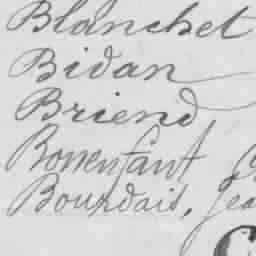 Blanchet
Bidan
Briend
Bonenfant
Bourdais, Jea